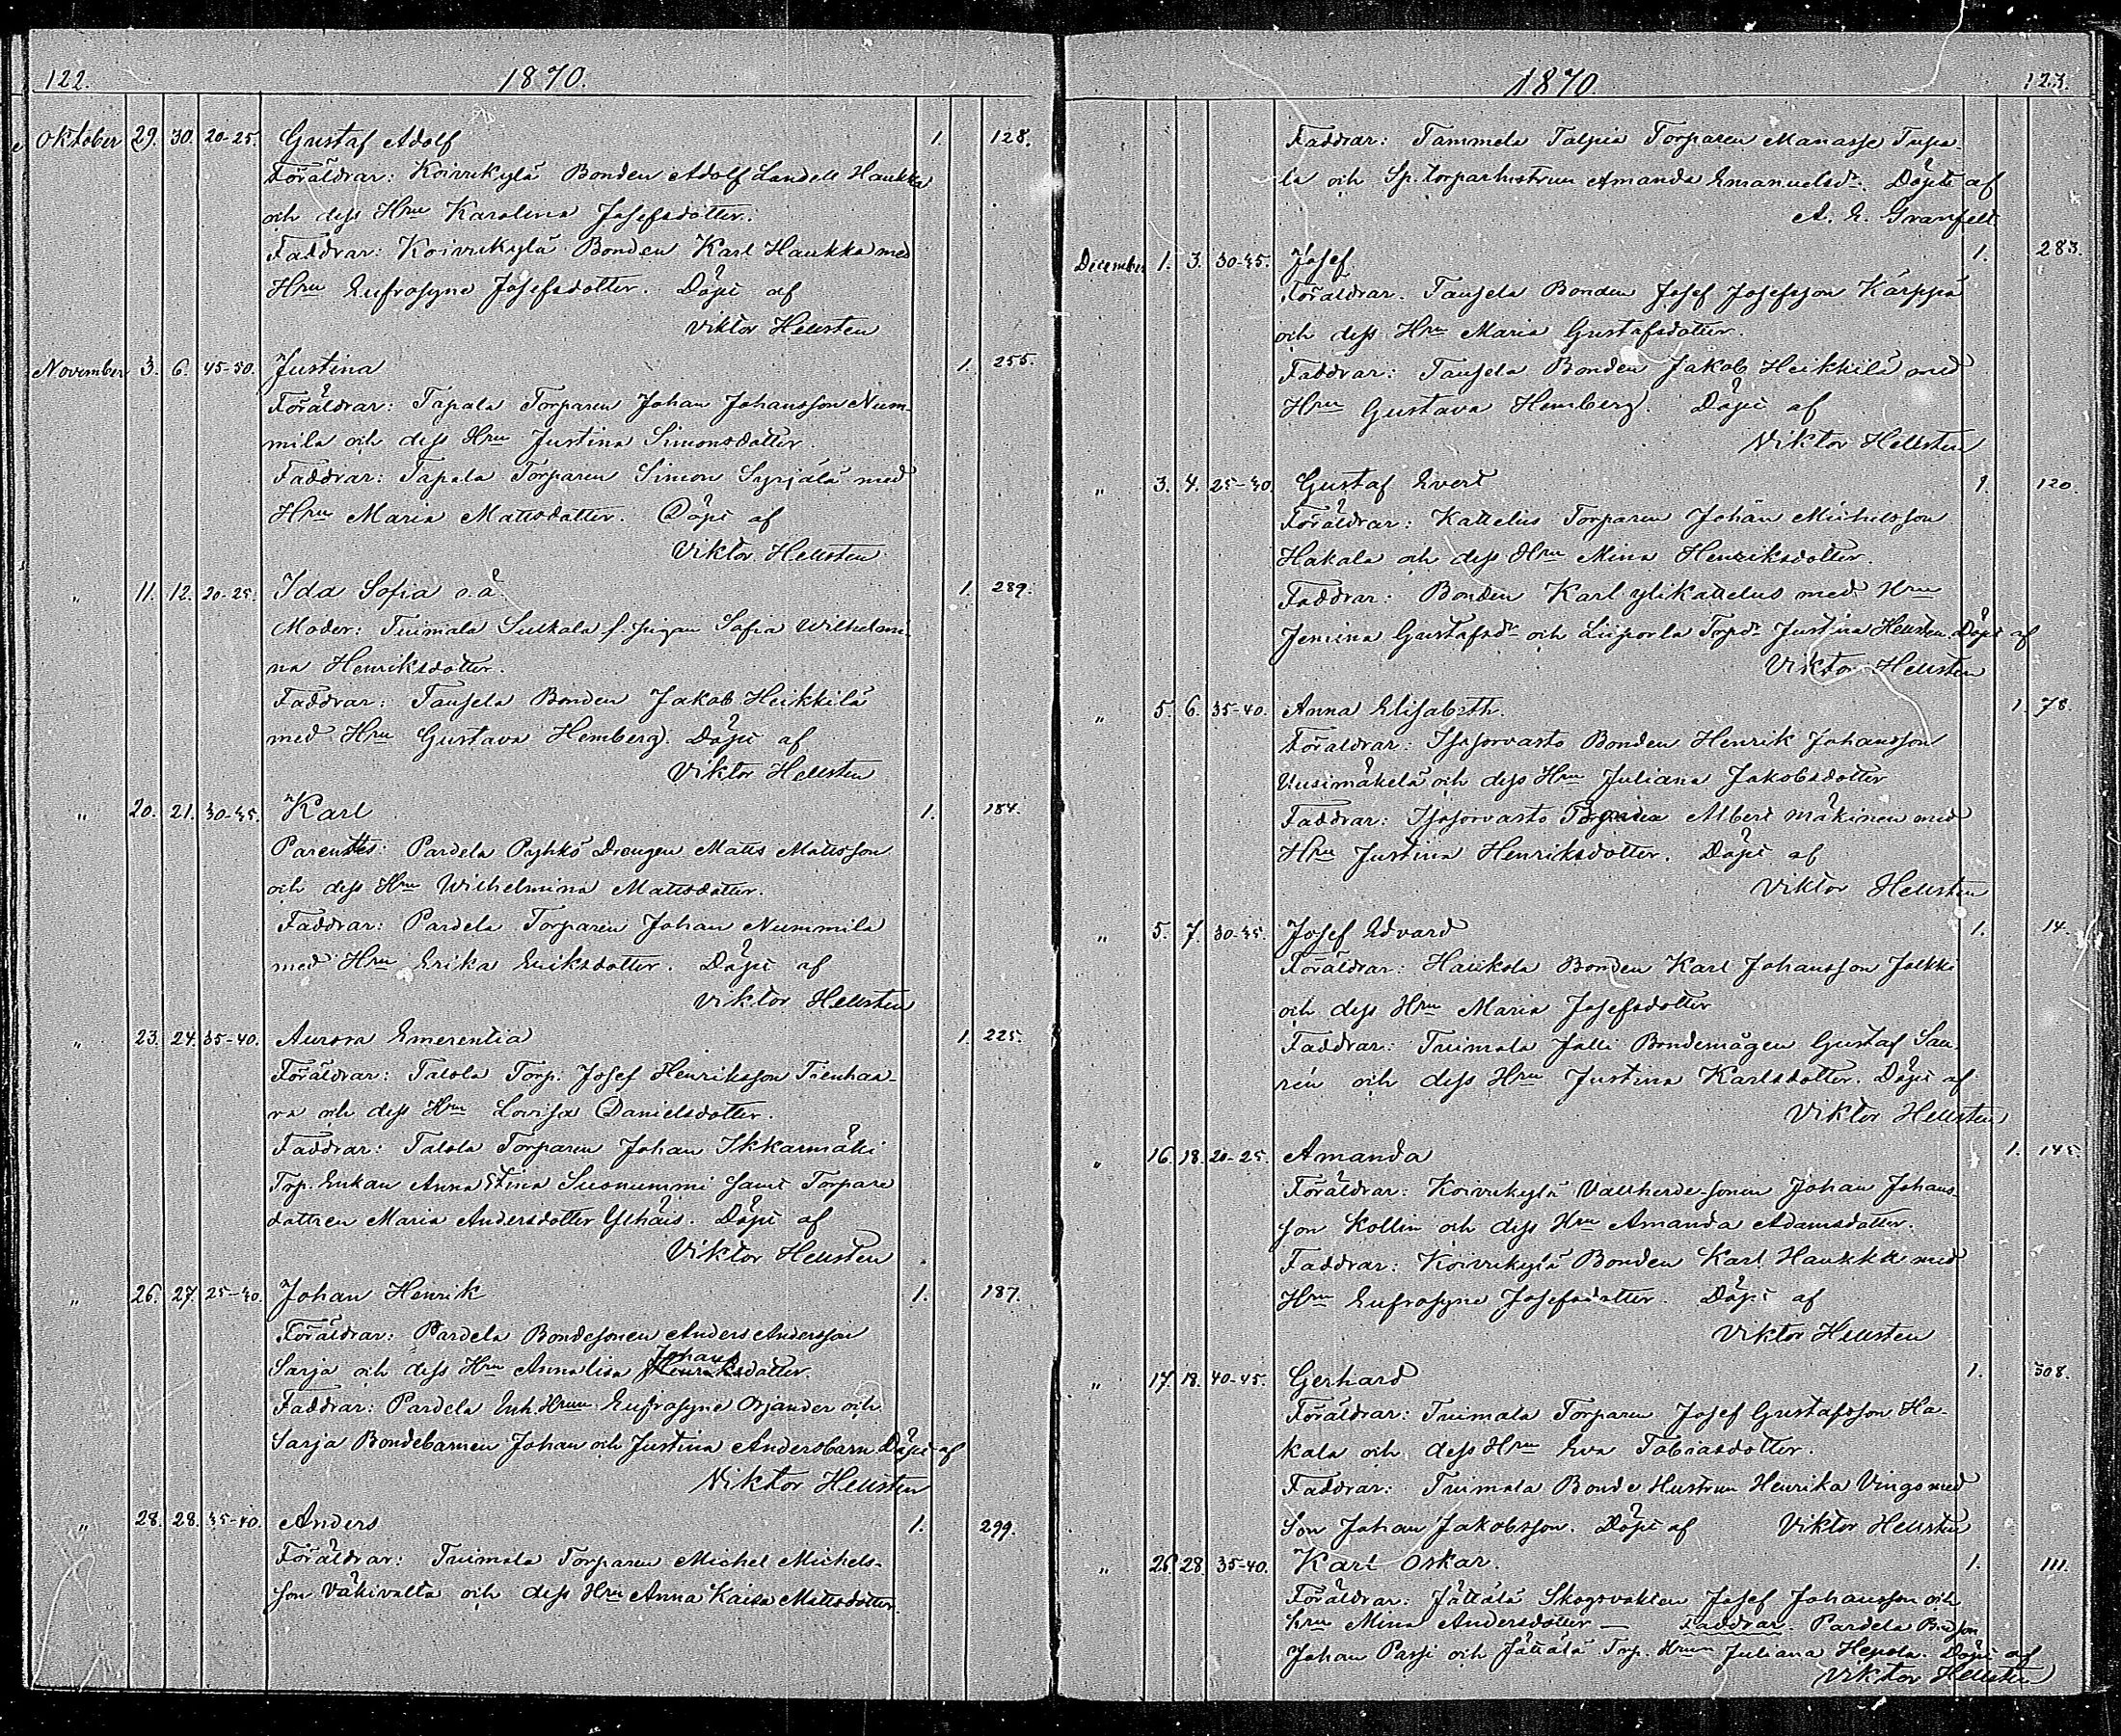 122. 1870.
Oktober 29. 30. 20-25. Gustaf Adolf 1. 128.
Föräldrar: Koivukylä Bonden Adolf Landell Haukka
och dess Hru Karolina Josefsdotter.
Faddrar: Koivukylä Bonden Karl Haukka med
Hru Eufrosyne Josefsdotter. Döpt af
Viktor Hellsten
November 3. 6. 45-50. Justina 1. 255.
Föräldrar: Tapala Torparen Johan Johansson Num-
mila och dess Hru Justina Simonsdotter.
Faddrar: Tapala Torparen Simon Syrjälä med
Hru Maria Mattsdotter. Döpt af
Viktor Hellsten
" 11. 12. 20-25. Ida Sofia o.ä. 1. 289.
Moder: Tuimala Sulkala f. pigan Sofia Wilhelmi-
na Henriksdotter.
Faddrar: Tausela Bonden Jakob Heikkilä
med Hru Gustava Hemberg. Döpt af
Viktor Hellsten
" 20. 21. 30-35. Karl 1. 184.
Parentes: Pardela Pyhkö Drengen Matts Mattsson
och dess Hru Wilhelmina Mattsdotter.
Faddrar: Pardela Torparen Johan Nummila
med Hru Erika Eriksdotter. Döpt af
Viktor Hellsten
" 23. 24. 35-40. Aurora Emerentia 1. 225.
Föräldrar: Talola Torp. Josef Henriksson Tienhaa-
ra och dess Hru Lovisa Danielsdotter.
Faddrar: Talola Torparen Johan Ikkarmäki
Trp. Enkan Anna Stina Suonummi samt Torpare
dottren Maria Andersdotter Ylhäis. Döpt af
Viktor Hellsten
" 26. 27. 25-30. Johan Henrik 1. 187.
Föräldrar: Pardela Bondesonen Anders Andersson
Sarja och dess Hru Annalisa Johansdotter.
Faddrar: Pardela Inh. Hrun Eufrosyne Orjander och
Sarja Bondebarnen Johan och Justina Andersbarn Döpt af
Viktor Hellsten
" 28. 28. 35-40. Anders 1. 299.
Föräldrar: Tuimala Torparen Michel Michels-
son Väkivalta och dess Hru Anna Kaisa Mattsdotter.
1870. 123.
Faddrar: Tammela Talpia Torparen Manasse Tupa-
la och Sp. torparhustrun Amanda Emanuelsdr. Döpt af
A. E. Granfelt.
December 1. 3. 30-35. Josef 1. 283.
Föräldrar. Tausela Bonden Josef Josefsson Kärppä
och dess Hru Maria Gustafsdotter.
Faddrar: Tausela Bonden Jakob Heikkilä med
Hru Gustava Hemberg. Döpt af
Viktor Hellsten
" 3. 4. 25-30. Gustaf Evert 1. 120.
Föräldrar: Kattelus Torparen Johan Michelsson
Hakala och dess Hru Mina Henriksdotter.
Faddrar: Bonden Karl ylikattelus med Hru
Jemina Gustafsdr och Liiporla Torpdr Justina Hellsten. Döpt af
Viktor Hellsten
" 5. 6. 35-40. Anna Elisabeth. 1. 78.
Föräldrar: Isosorvasto Bonden Henrik Johansson
Uusimäkelä och dess Hru Juliana Jakobsdotter
Faddrar: Isosorvasto Albert Mäkinen med
Hru Justina Henriksdotter. Döpt af
Viktor Hellsten
" 5. 7. 30-35. Josef Edvard 1. 14.
Föräldrar: Haukola Bonden Karl Johansson Jalkki
och dess Hru Maria Josefsdotter
Faddrar: Tuimala Jalli Bondemågen Gustaf Sau-
rén och dess Hru Justina Karlsdotter. Döpt af
Viktor Hellsten
" 16. 18. 20-25. Amanda 1. 145.
Föräldrar: Koivukylä Vallherde-sonen Johan Johans-
son Kollin och dess Hru Amanda Adamsdotter.
Faddrar: Koivukylä Bonden Karl Haukka med
Hru Eufrosyne Josefsdotter. Döpt af
Viktor Hellsten
" 17. 18. 40-45. Gerhard 1. 308.
Föräldrar: Tuimala Torparen Josef Gustafsson Ha-
kala och dess Hru Eva Tobiasdotter.
Faddrar: Tuimala Bonde Hustrun Henrika Vingo med
Son Johan Jakobsson. Döpt af Viktor Hellsten
" 26. 28. 35-40. Karl Oskar. 1. 111.
Föräldrar: Jättälä Skogsvakten Josef Johansson och
hru Mina Andersdotter — Faddrar. Pardela Bondson
Johan Passi och Jättälä Trp. Hrun Juliana Hepola. Döpt af
Viktor Hellsten